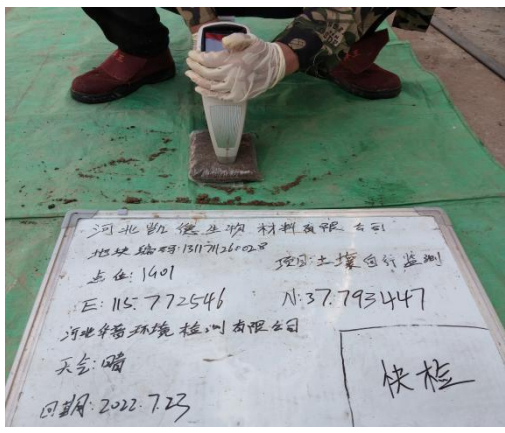 河北凯德生物材料有限公司
地块编号:1311711260028
点位:1G01 项目:土壤自行监测
E:115.772546 N:37.793447
河北华茵环境检测有限公司
天气:晴
快检
日期:2022.7.23